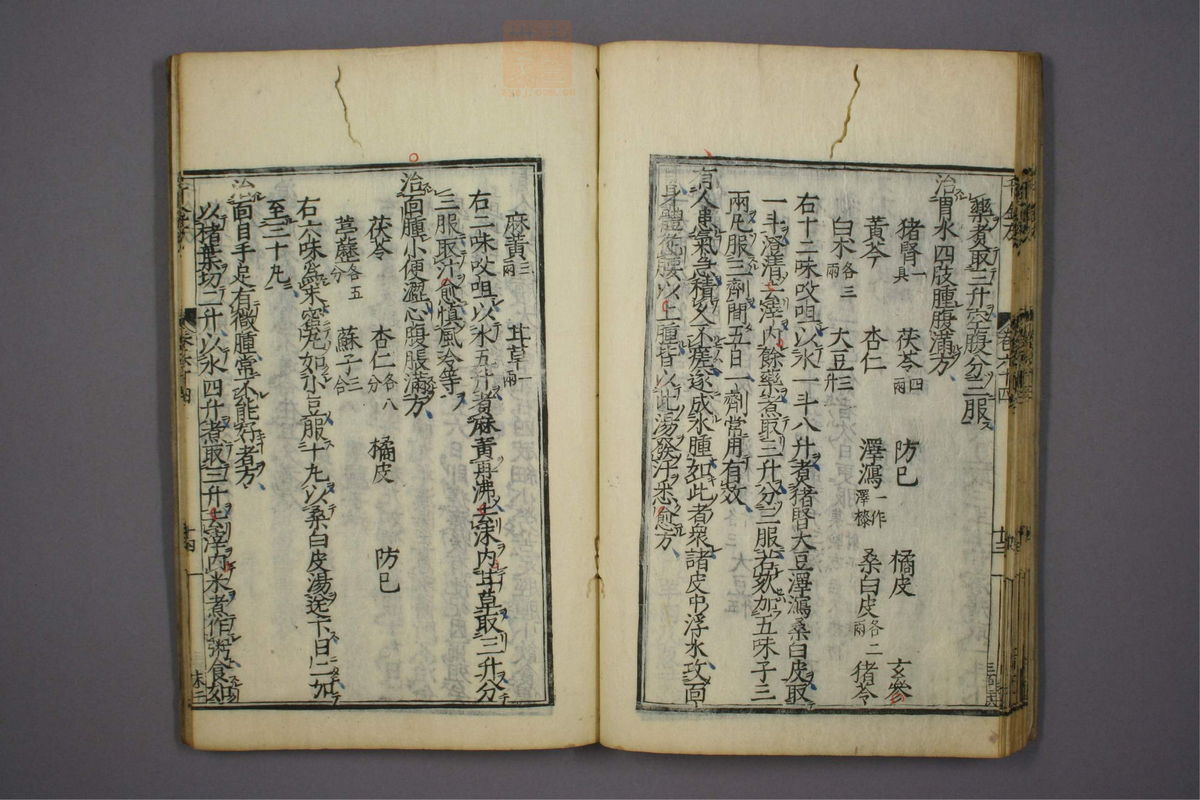 藥者取三升空腹分二服
治胃水四肢腫腹滿方
猪腎一具 茯苓四兩 防巳 橘皮 玄參
黃芩 杏仁 澤瀉一作澤漆 桑白皮各二兩 猪苓
白朮各三兩 大豆三升
右十二味㕮咀以水一斗八升煮猪腎大豆澤瀉桑白皮取
一斗澄清去滓內餘藥煮取三升分三服若欬加五味子三
兩凡服三劑間五日一劑常用有效
有人患氣急積久不瘥遂成水腫如此者衆諸皮中浮水攻面
目身體從腰以上腫皆以此湯發汗悉愈方
麻黃三兩 甘草一兩
右二味㕮咀以水五升煮麻黃再沸去沫內甘草取三升分
三服取汗愈慎風冷等
治面腫小便澀心腹脹滿方
茯苓 杏仁各八分 橘皮 防巳
葶藶各五分 蘇子三合
右六味爲末蜜丸如小豆服十丸以桑白皮湯送下日三加
至三十丸
治面目手足有微腫常不能好者方
以楮葉切二升以水四升煮取三升去滓內米煮作粥食如